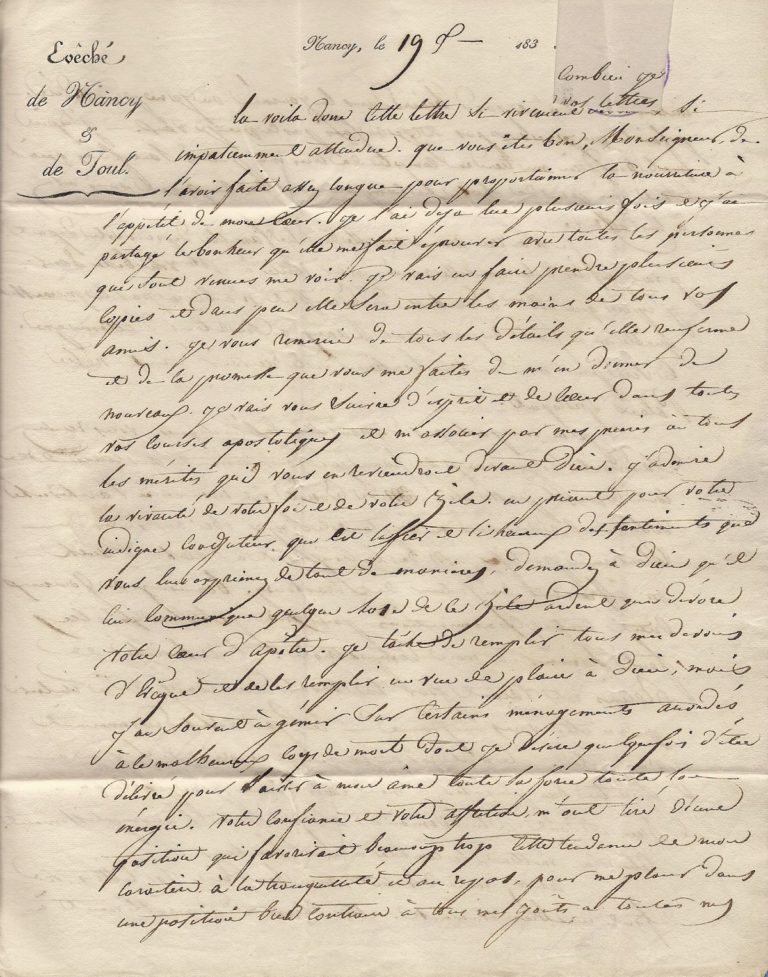 Evêché
de Nancy
&
de Toul.
Nancy, le 19 183
Combien je
la voila donc cette lettre si vivement vos lettres si
impatiemment attendue. que vous êtes bon, Monseigneur, de
l'avoir faite assez longue pour proportionner la nourriture à
l'appétit de mon cœur. je l'ai deja lue plusieurs fois et j'ai
partagé le bonheur qu'elle me fait éprouver avec toutes les personnes
qui sont venues me voir. je vais en faire prendre plusieurs
copies et dans peu elle sera entre les mains de tous vos
amis. je vous remercie de tous les détails qu'elle renferme
et de la promesse que vous me faites de m'en donner de
nouveaux. je vais vous suivre d'esprit et de cœur dans toutes
vos courses apostoliques et m'associer par mes prieres à tous
les mérites qui vous en reviendront devant Dieu. j'admire
la vivacité de votre foi et de votre zèle. en priant pour votre
indigne coadjuteur qui est si fier et si heureux des sentiments que
vous lui exprimez de tant de manieres, demandez à Dieu qu'il
lui communique quelque chose de ce zèle ardent qui dévore
votre cœur d'apôtre. je tâche de remplir tous mes devoirs
d'Evêque et de les remplir en vue de plaire à Dieu; mais
j'ai souvent à gémir sur certains ménagements accordés
à ce malheureux corps de mort dont je désire quelquefois d'être
délivré pour laisser à mon âme toute sa force toute son
énergie. Votre confiance et votre affection m'ont tiré d'une
position qui favorisait beaucoup trop cette tendance de mon
caractère à la tranquillité et au repos, pour me placer dans
une position bien contraire à tous mes goûts a toutes mes